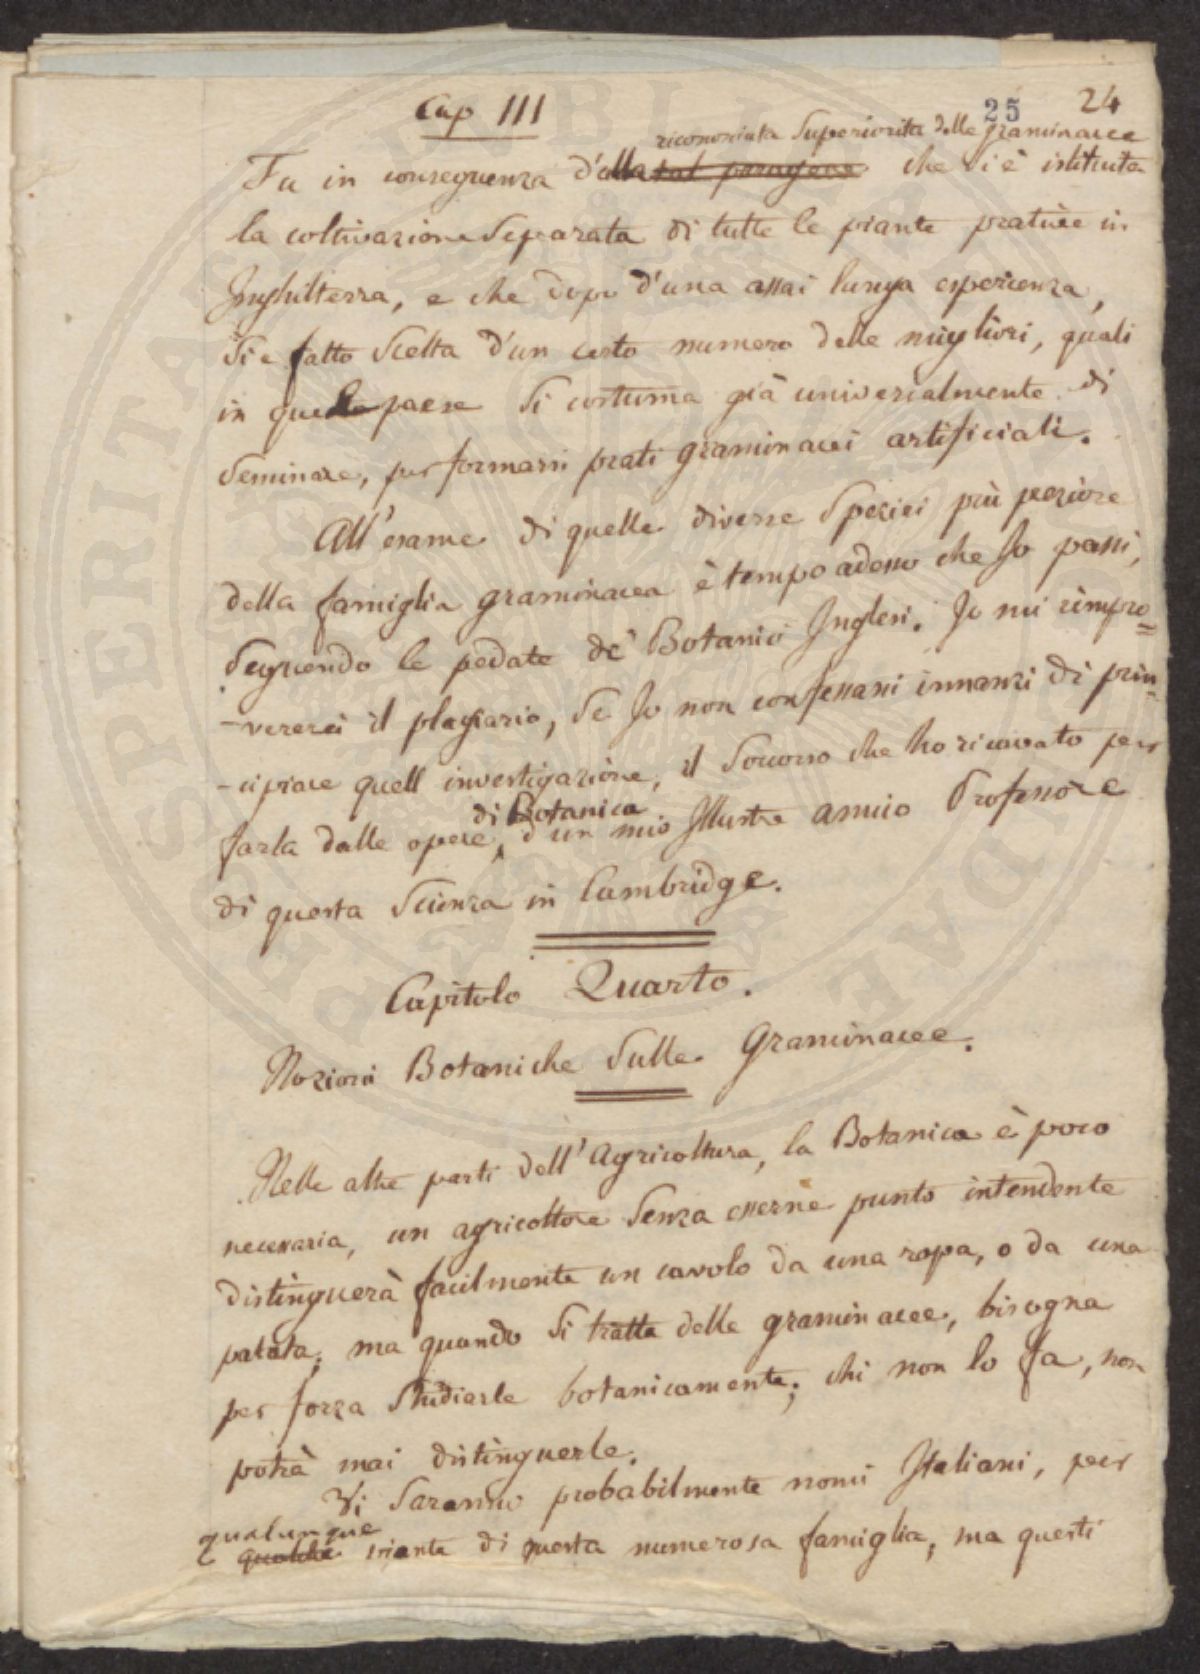 25 24
Cap III
riconosciuta Superiorita delle graminacee
Fu in conseguenza d'alla tal paragone che Si è istituita
la coltivazione Separata di tutte le piante prative in
Inghilterra, e che dopo d'una assai lunga esperienza,
Si e fatto Scelta d'un certo numero delle migliori, quali
in quello paese Si costuma già universalmente di
Seminare, per formarsi prati graminacei artificiali.
All'esame di quelle diverse Speziei più
della famiglia graminacea è tempo adesso che Io passi,
Seguendo le pedate de' Botanici Inglesi. Io mi rimpro=
-vererei il plagiario, Se Io non confessassi innanzi di prin-
-cipiare quell investigazione, il Soccorso che ho ricavato per
di Botanica
farla dalle opere, d'un mio Illustre amico Professore
di questa Scienza in Cambridge.
Capitolo Quarto.
Nozioni Botaniche Sulle Graminacee.
Nelle altre parti dell'Agricoltura, la Botanica è poco
necessaria, un agricoltore Senza esserne punto intendente
distinguerà facilmente un cavolo da una rapa, o da una
patata; ma quando Si tratta delle graminacee, bisogna
per forza Studiarle botanicamente; chi non lo fa, non
potrà mai distinguerle.
Vi Saranno probabilmente nomi Italiani, per
qualunque
qualche pianta di questa numerosa famiglia, ma questi